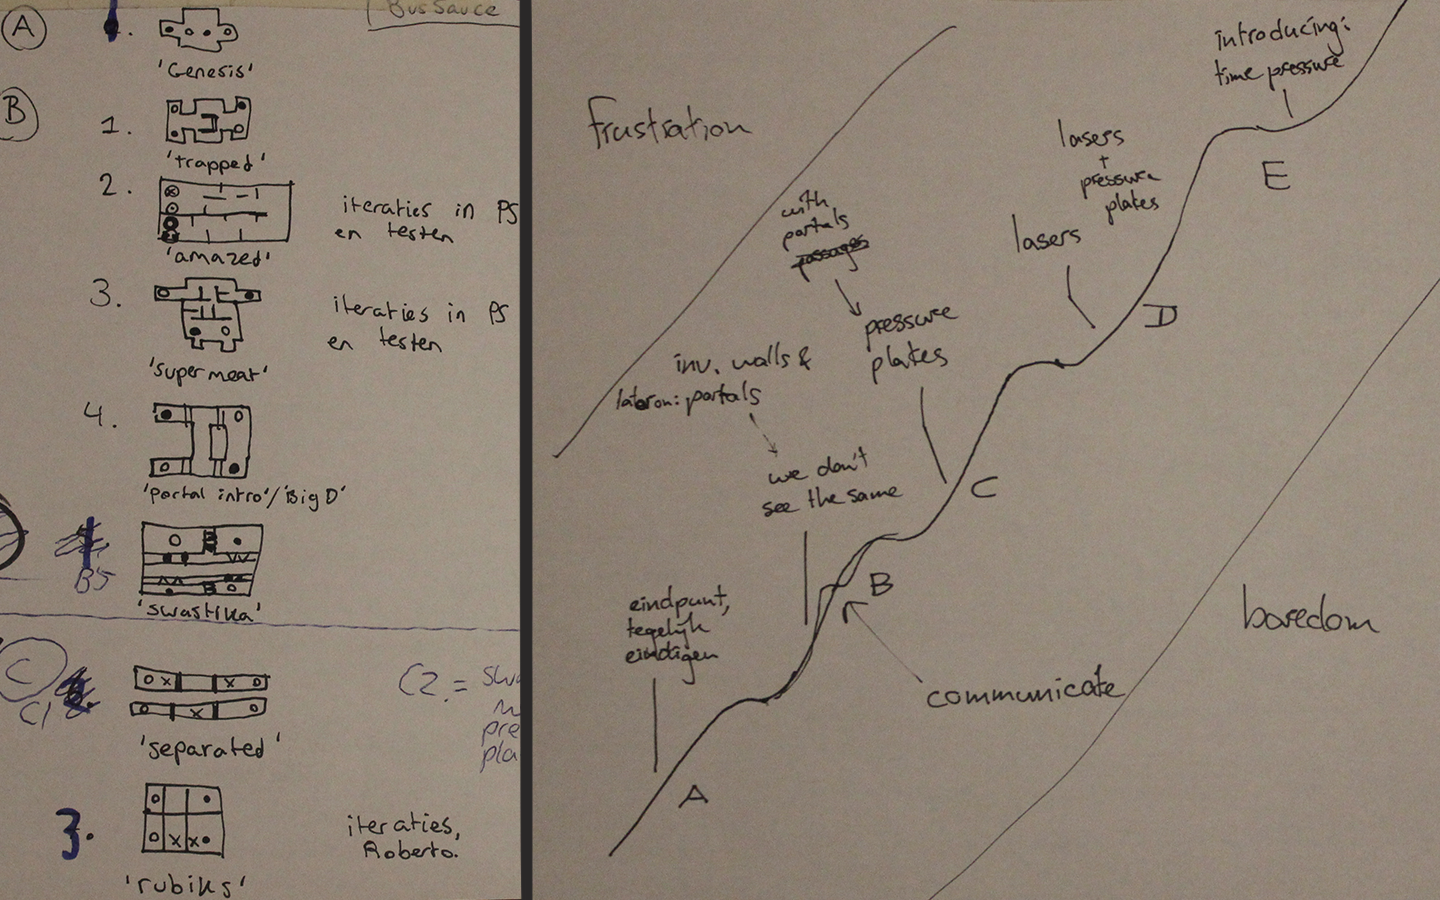 BusSauce
A
'Genesis'
B
1.
'trapped'
2.
iteraties in PS
en testen
'amazed'
3.
iteraties in PS
en testen
'supermeat'
4.
'portal intro'/'Big D'
B5
'swastika'
C
C1
C2. =
'separated'
3.
iteraties,
Roberto.
'rubiks'
frustration
introducing:
time pressure
lasers
+
pressure
plates
E
with
portals
passages
lasers
D
pressure
plates
inv. walls &
lateron: portals
we don't
see the same
C
B
eindpunt,
tegelijk
eindigen
communicate
boredom
A